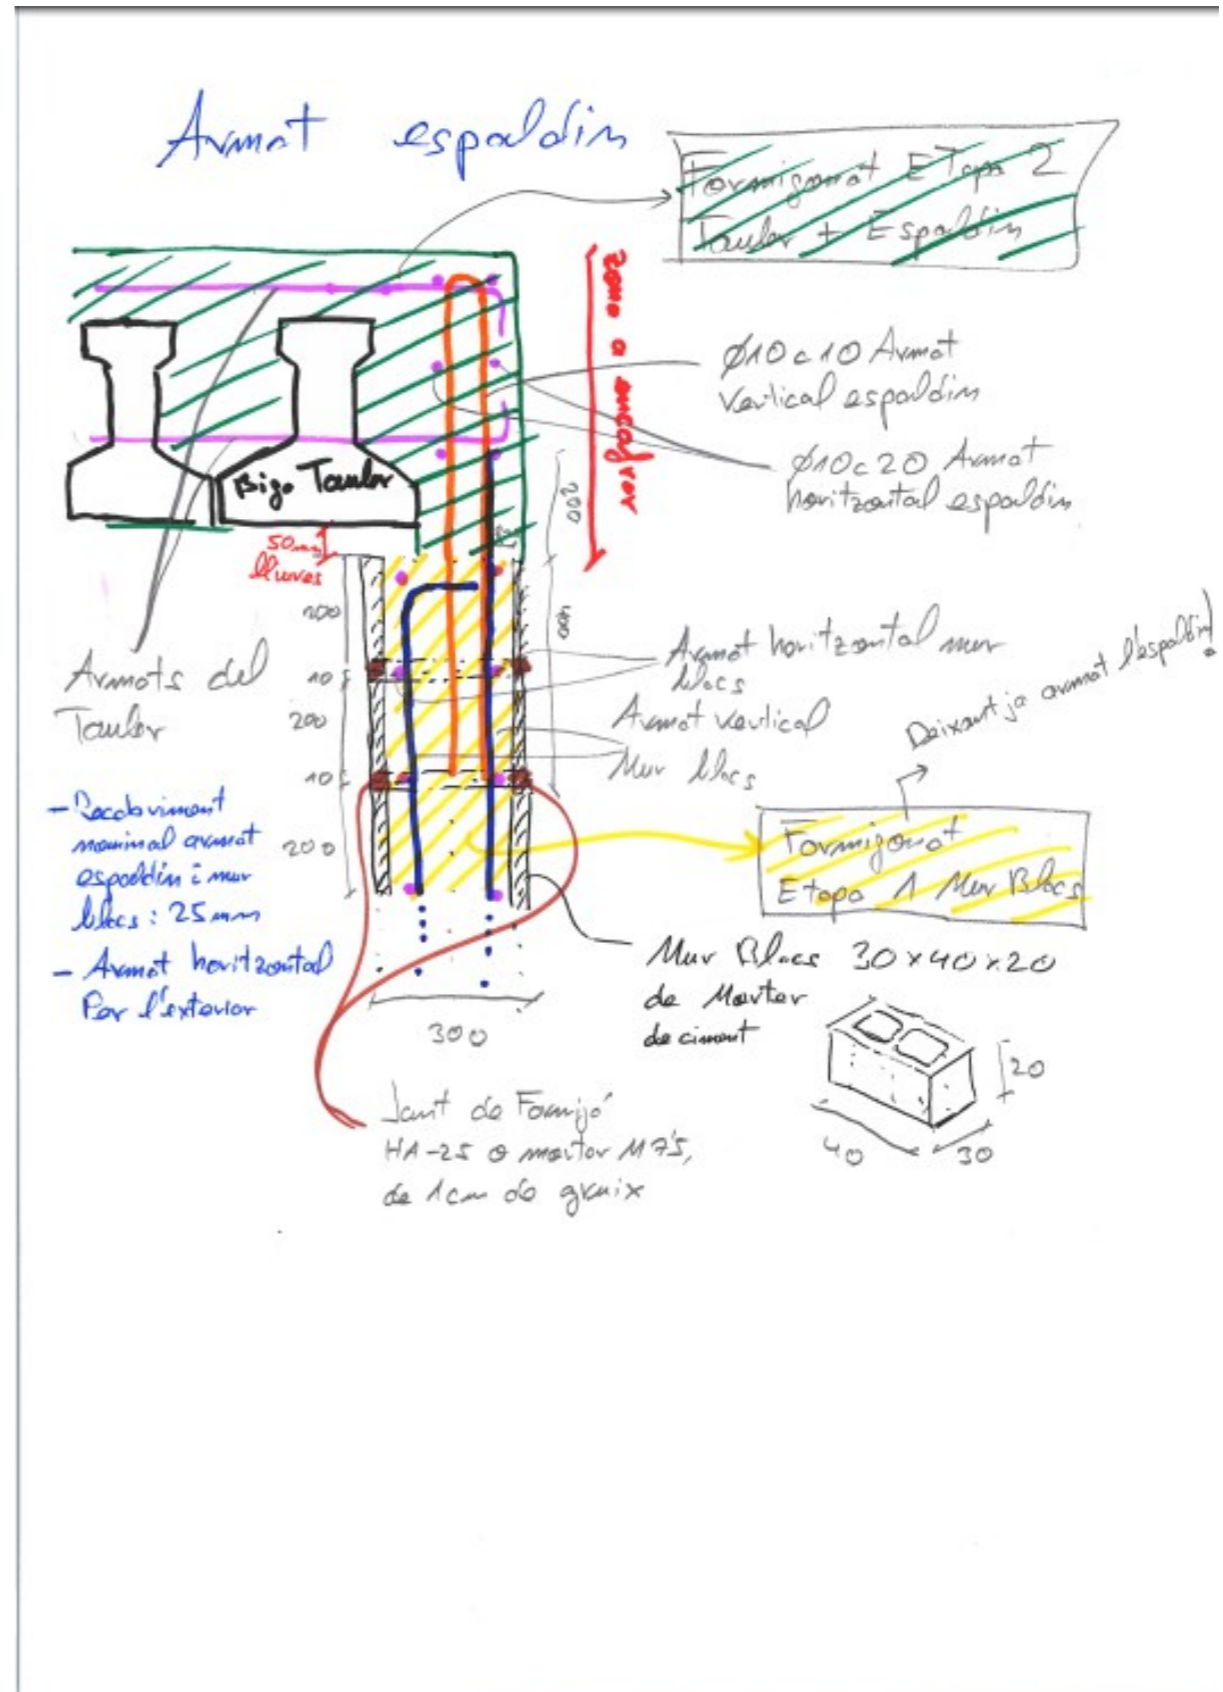 Armat espaldin
Formigonat Etapa 2
Tauler + Espaldin
zona a encofrar
Ø10c10 Armat
vertical espaldin
Ø10c20 Armat
horitzontal espaldin
Biga Tauler
50mm
lliures
200
400
200
10
200
10
200
Armat horitzontal mur
blocs
Armat vertical
Mur blocs
Deixant ja armat l'espaldin!
Armats del
Tauler
- Recobriment
nominal armat
espaldin i mur
blocs: 25mm
- Armat horitzontal
Per l'exterior
Formigonat
Etapa 1 Mur Blocs
Mur Blocs 30x40x20
de Morter
de ciment
300
20
40
30
Junt de Formigó
HA-25 o morter M7'5,
de 1cm de gruix